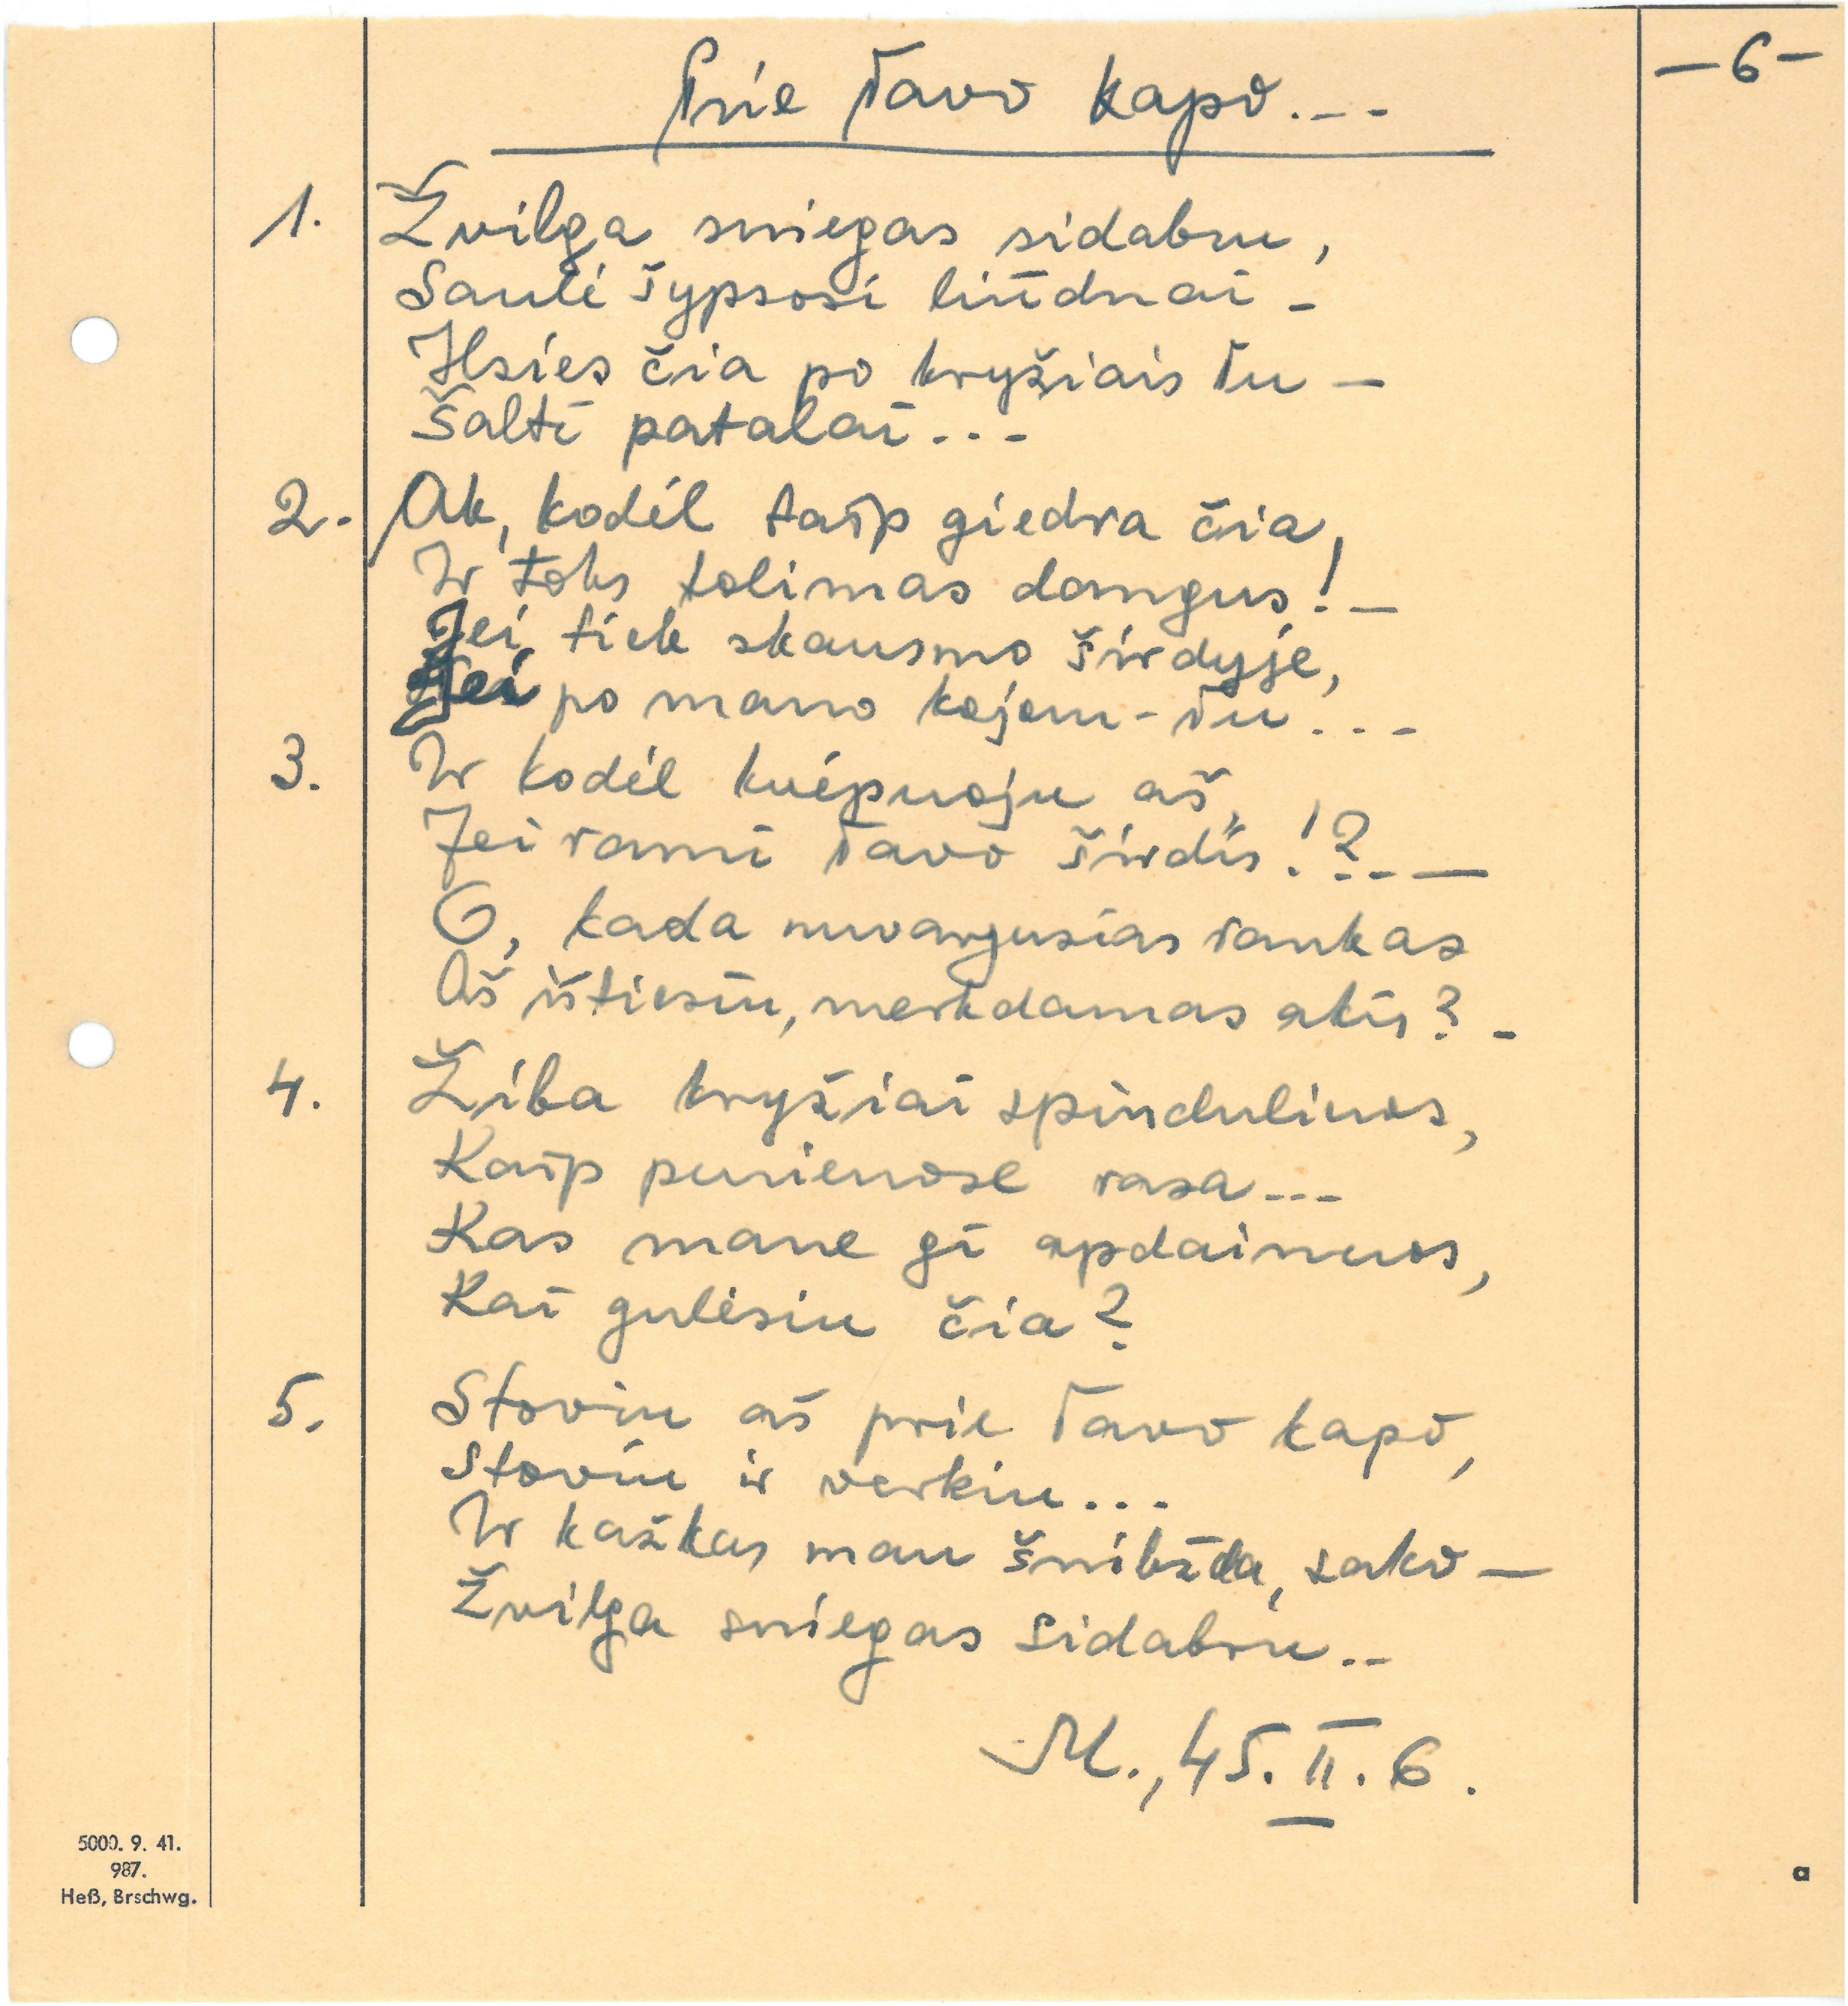 Prie Tavo kapo...
— 6 —
1. Žvilga sniegas sidabru,
Saulė šypsosi liūdnai –
Ilsies čia po kryžiais Tu –
Šalti patalai...
2. Ak, kodėl taip giedra čia,
Ir toks tolimas dangus! –
Jei tiek skausmo širdyje,
Jei po mano kojom – Tu...
3. Ir kodėl kvėpuoju aš,
Jei rami Tavo širdis!?.. —
O, kada nuvargusias rankas
Aš ištiesiu, merkdamas akis? –
4. Žiba kryžiai spinduliuos,
Kaip purienose rasa...
Kas mane gi apdainuos,
Kai gulėsiu čia?
5. Stoviu aš prie Tavo kapo,
Stoviu ir verkiu...
Ir kažkas man šnibžda, sako —
Žvilga sniegas sidabru..
M., 45. II. 6.
5000. 9. 41.
987.
Heß, Brschwg.
a